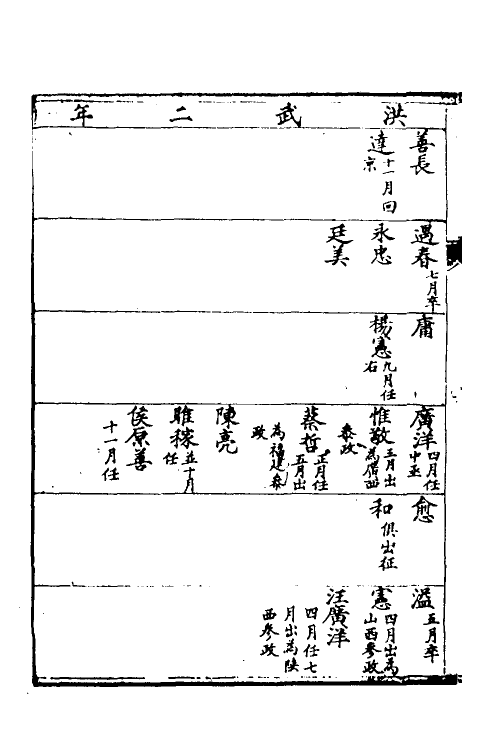 洪武二年
善長
達十一月回京
遇春七月卒
永忠
廷美
庸
楊憲九月任右
廣洋四月任中丞
惟敬三月出為廣西參政
蔡哲正月任五月出為福建參政
陳亮
睢稼並十月任
侯原善十一月任
愈
和俱出征
溢五月卒
憲四月出為山西參政
汪廣洋四月任七月出為陝西參政